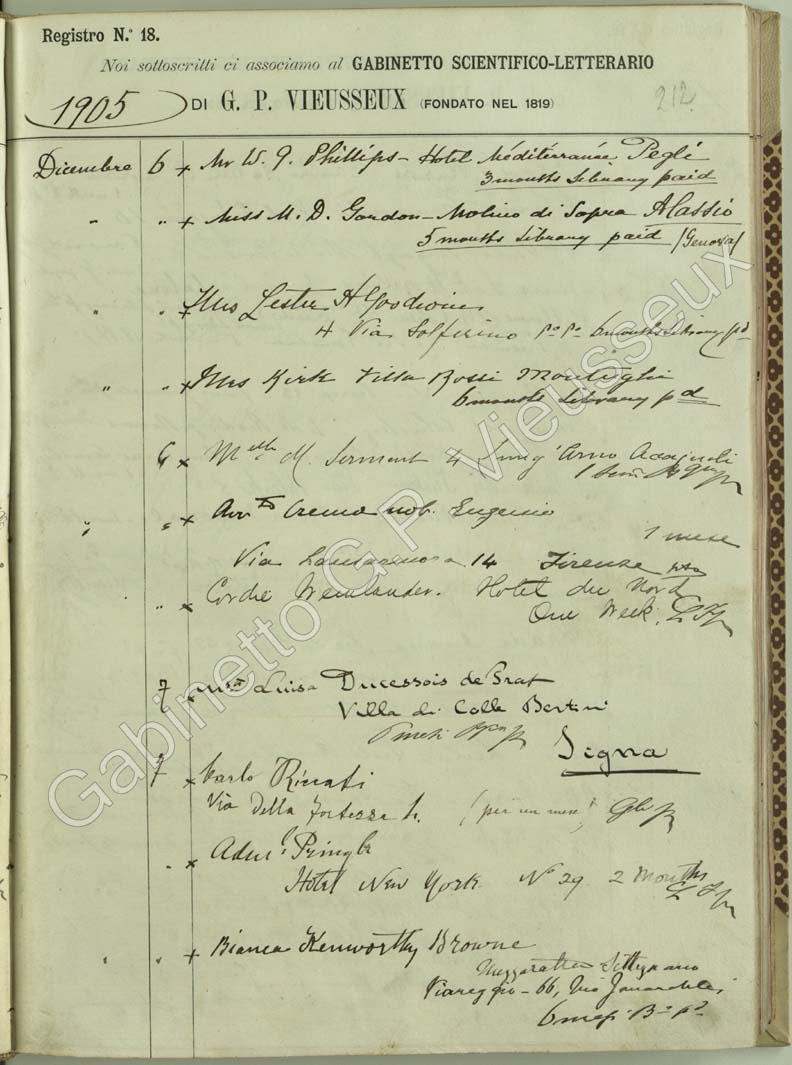 Registro N.º 18.
Noi sottoscritti ci associamo al GABINETTO SCIENTIFICO-LETTERARIO
1905 DI G. P. VIEUSSEUX (FONDATO NEL 1819)
212
Dicembre 6 x Mr W. J. Phillips - Hotel Méditérranée Pegli
3 months Library paid
" " x Miss M. D. Gordon - Molino di Sopra Alassio
5 months Library paid (Genova)
" " x Mrs Lester A Goodwin
4 Via Solferino po po 6 months Library pd
" " x Mrs Kirk Villa Rossi Montughi
6 months Library pd
6 x Melle M. Serment 4 Lung' Arno Acciajuoli
" " x Avv.to Crema nob. Eugenio
1 mese
Via 14 Firenze
" x Weinlander. Hotel du Nord
One Week.
7 x Luisa Ducessois de Prat
Villa di Colle Bertini
Signa
7 x Carlo Riccati
Via della Fortezza (per un mese)
" x Adml Pringle
Hotel New York No 29 2 Months
" " x Bianca Kenworthy Browne
Settignano
Viareggio - 66, Via
6 mesi
Gabinetto G P Vieusseux